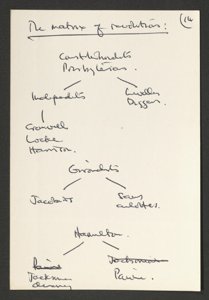 The matrix of revolution: (14
Constitutionalists
Presbyterians.
Independents Levellers
Diggers.
Cromwell
Locke
Harrington.
Girondists
Jacobins Sans
culottes.
Hamilton.
Paine Jacksonian
Jackson Paine.